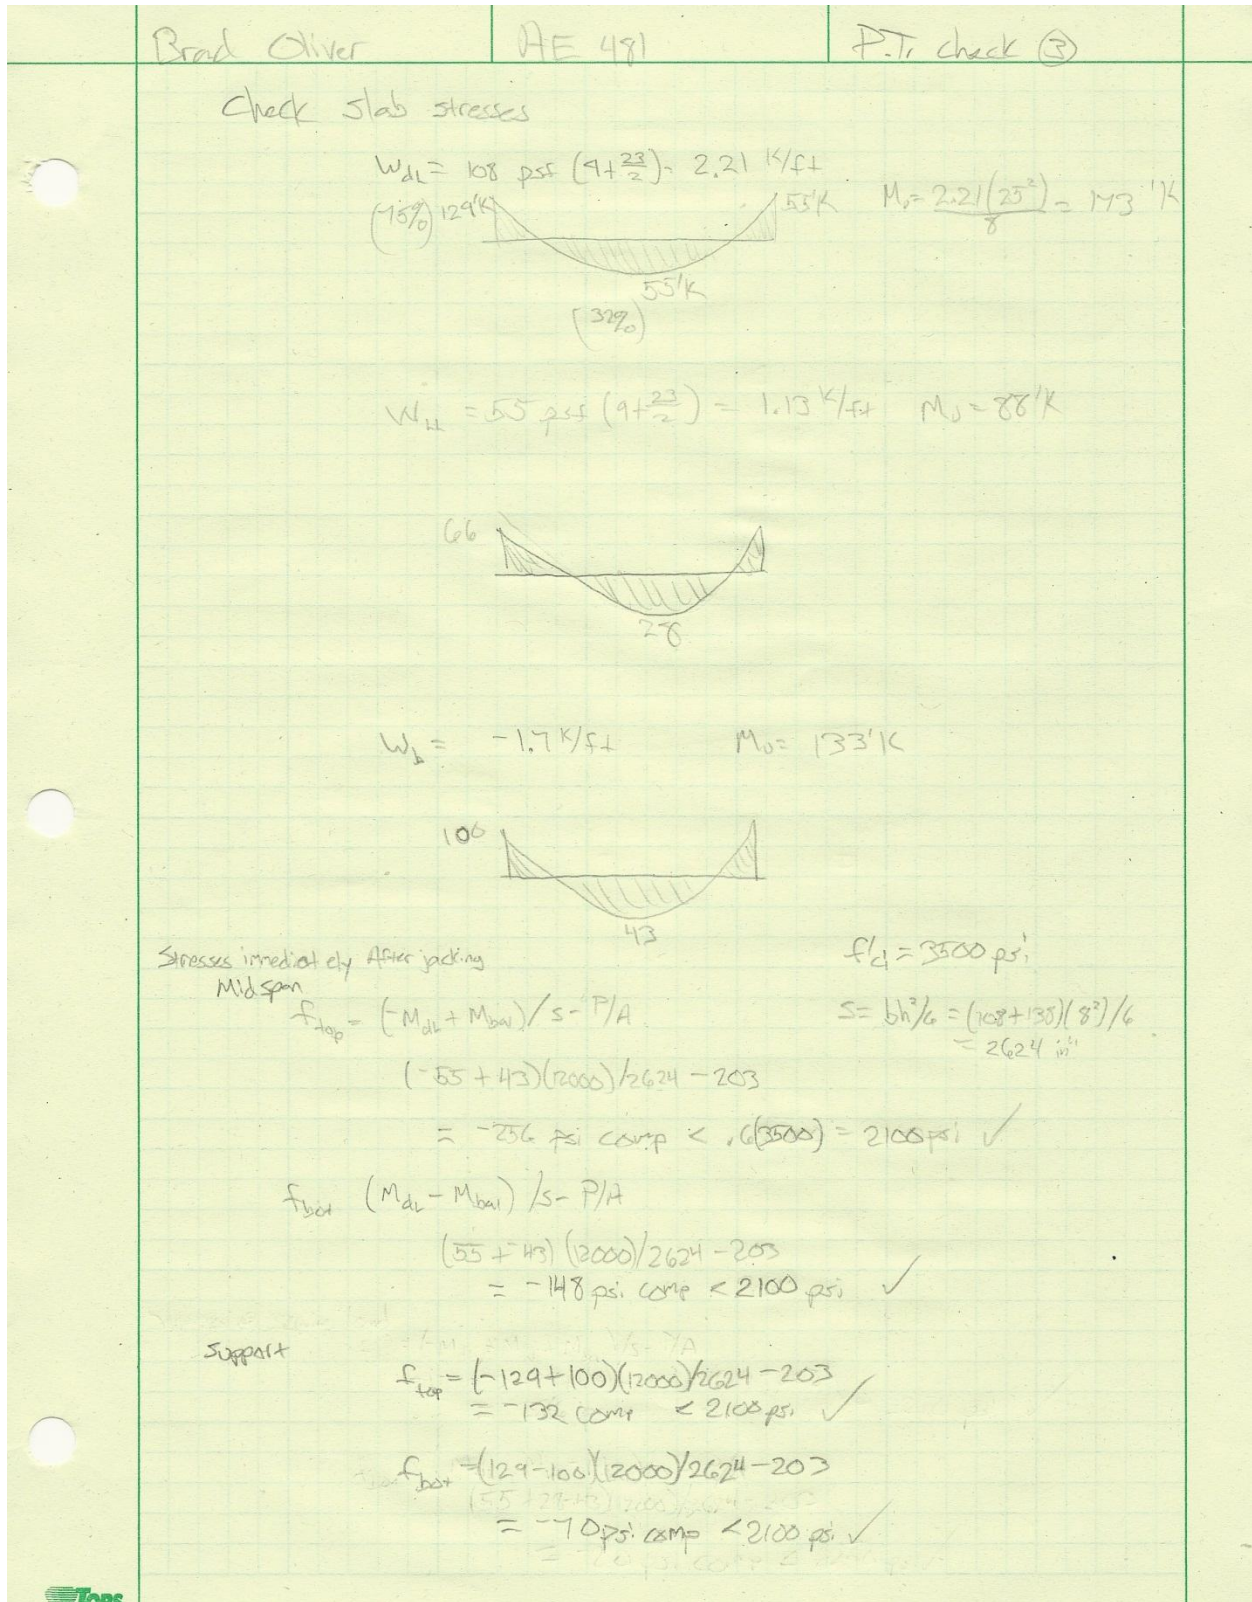 Brad Oliver AE 481 P.T. check ③
Check slab stresses
W_dL = 108 psf (9+23/2) = 2.21 K/ft
(75%) 129'K 55'K M_o = 2.21(25²)/8 = 173 'K
55'K
(32%)
W_LL = 55 psf (9+23/2) = 1.13 K/ft M_o = 88'K
66
28
W_b = -1.7 K/ft M_o = 133'K
100
43
Stresses immediately After jacking f'ci = 3500 psi
Midspan
f_top = (-M_dL + M_bal)/S - P/A S = bh²/6 = (108+138)(8²)/6
= 2624 in³
(-55 + 43)(12000)/2624 - 203
= -256 psi comp < .6(3500) = 2100 psi ✓
f_bot (M_dL - M_bal)/S - P/A
(55 + -43)(12000)/2624 - 203
= -148 psi comp < 2100 psi ✓
Support
f_top = (-129+100)(12000)/2624 - 203
= -132 comp < 2100 psi ✓
f_bot = (129-100)(12000)/2624 - 203
= -70 psi comp < 2100 psi ✓
TOPS